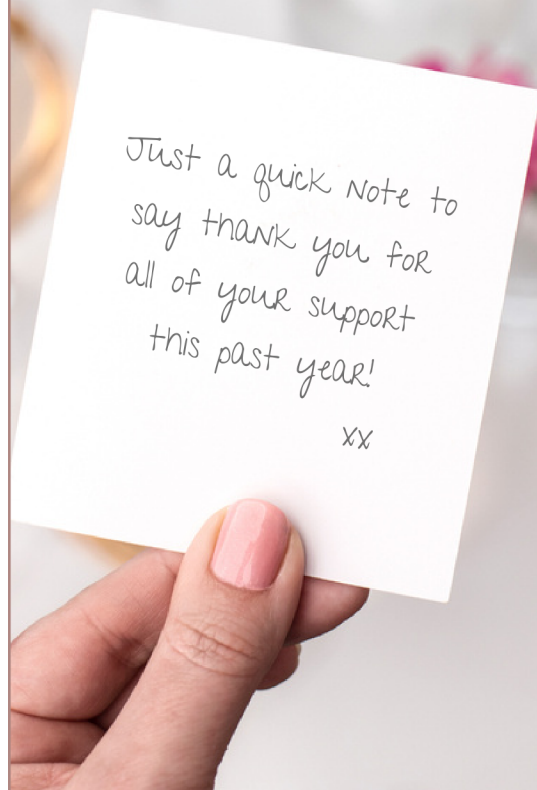 Just a quick note to
say thank you for
all of your support
this past year!
xx